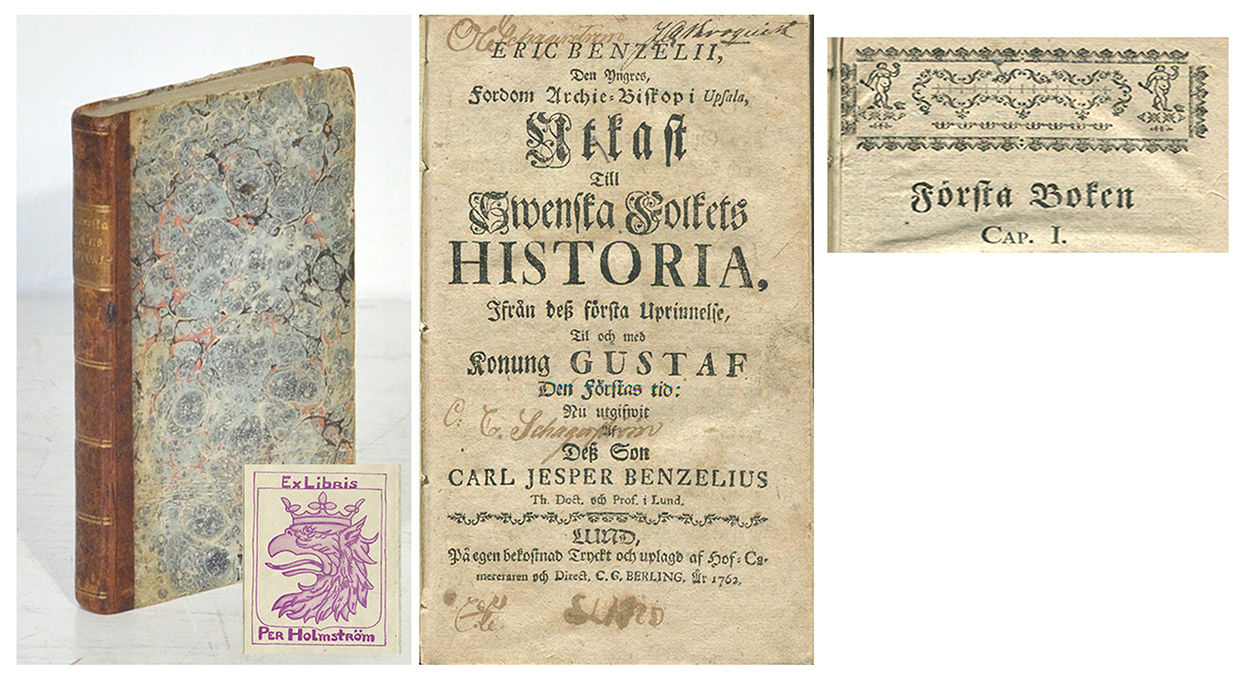 Ex Libris
Per Holmström
ERIC BENZELII,
Den Yngres,
Fordom Archie-Biskop i Upsala,
Utkast
Till
Swenska Folkets
HISTORIA,
Ifrån deß första Uprinnelse,
Til och med
Konung GUSTAF
Den Förstas tid:
Nu utgifwit
Af
C. E. Schagerström
Deß Son
CARL JESPER BENZELIUS
Th. Doct. och Prof. i Lund.
LUND,
På egen bekostnad Tryckt och uplagd af Hof-Ca-
mereraren och Direct. C. G. BERLING, År 1762.
Första Boken
CAP. I.